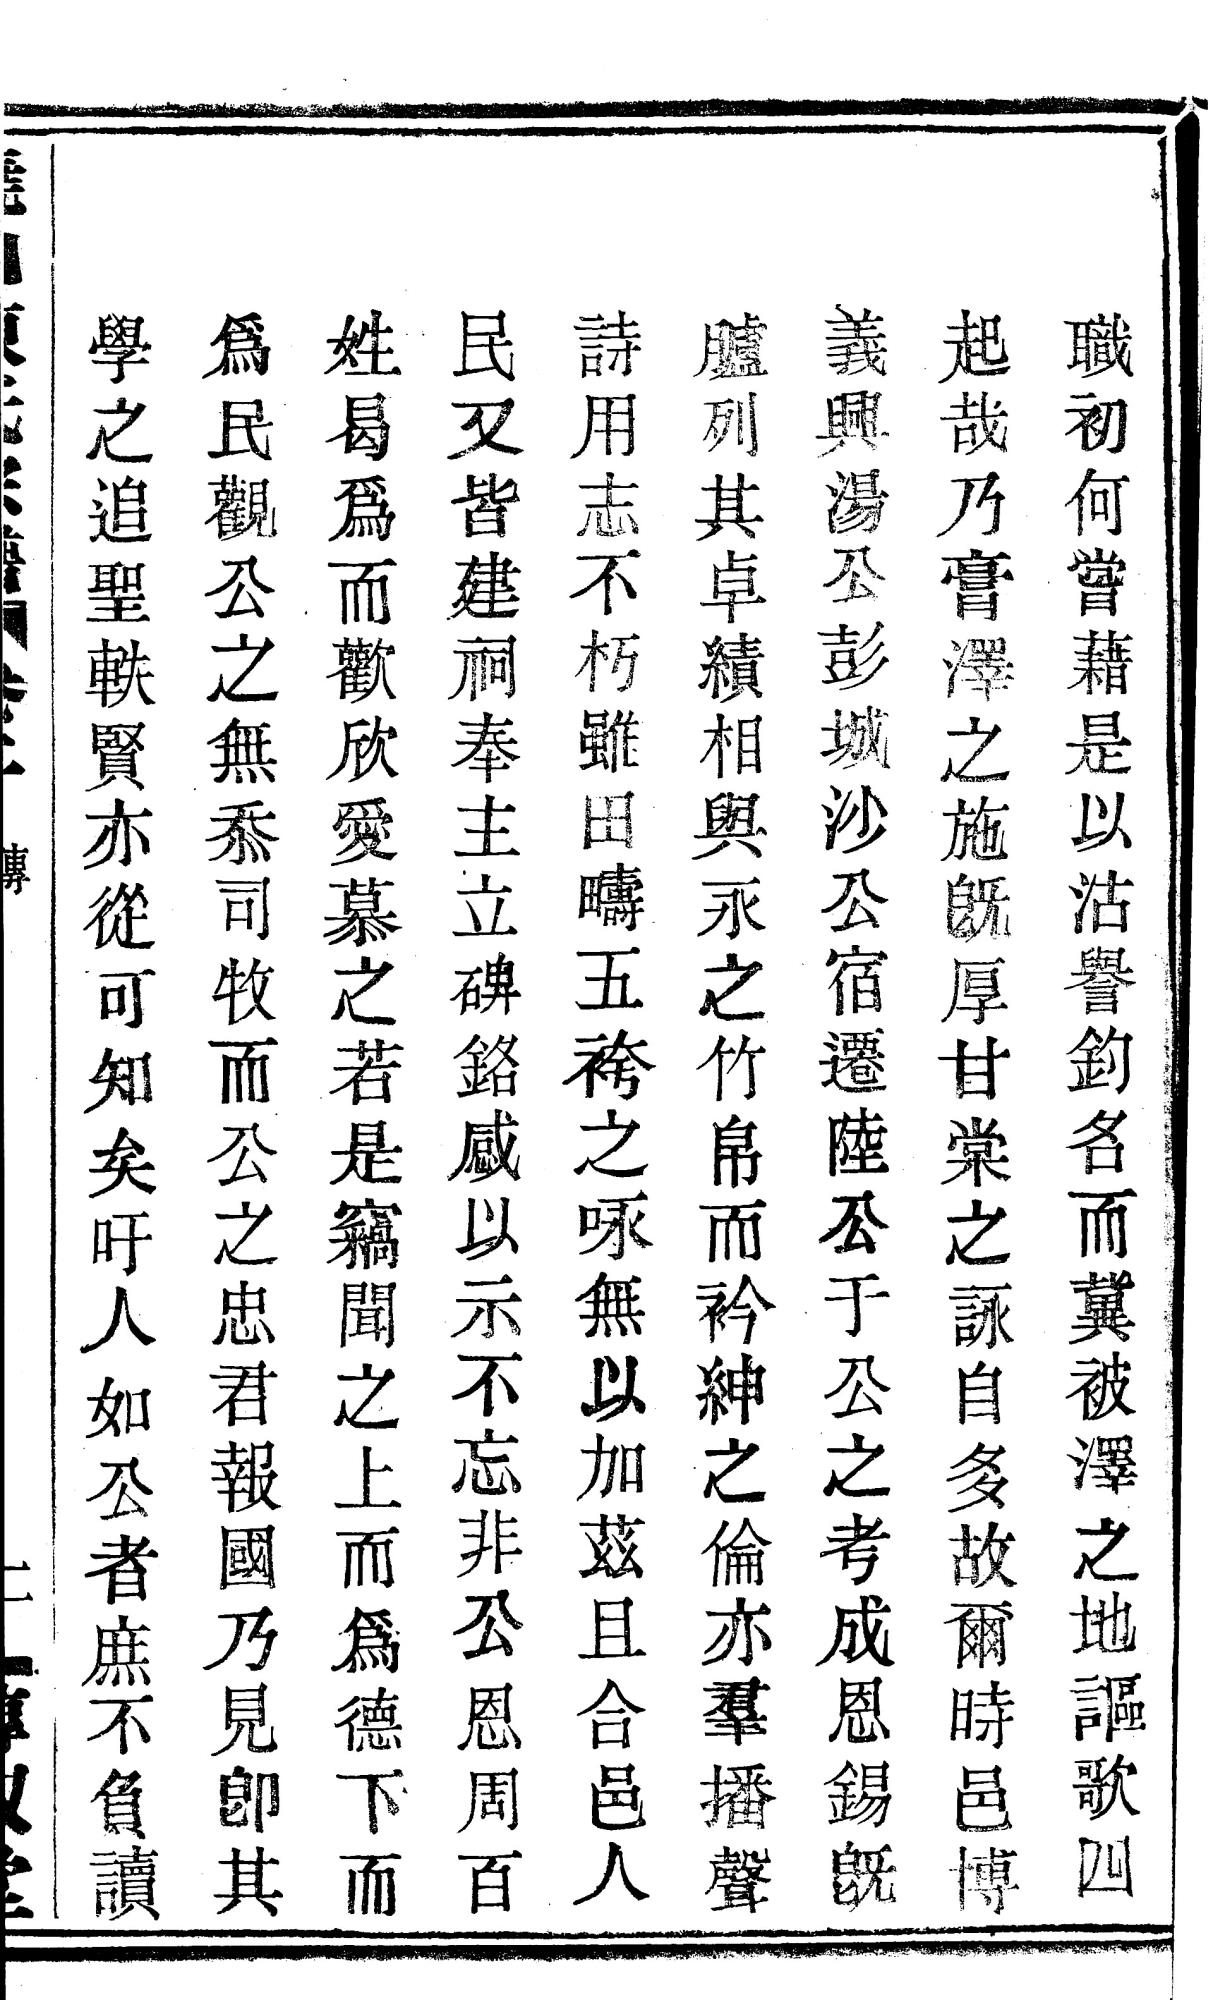 職初何嘗藉是以沽譽釣名而冀被澤之地謳歌四
起哉乃膏澤之施旣厚甘棠之詠自多故爾時邑博
義興湯公彭城沙公宿遷陸公于公之考成恩錫旣
臚列其卓績相與永之竹帛而衿紳之倫亦羣播聲
詩用志不朽雖田疇五袴之咏無以加茲且合邑人
民又皆建祠奉主立碑銘感以示不忘非公恩周百
姓曷爲而歡欣愛慕之若是竊聞之上而爲德下而
爲民觀公之無忝司牧而公之忠君報國乃見卽其
學之追聖軼賢亦從可知矣吁人如公者庶不負讀
傳